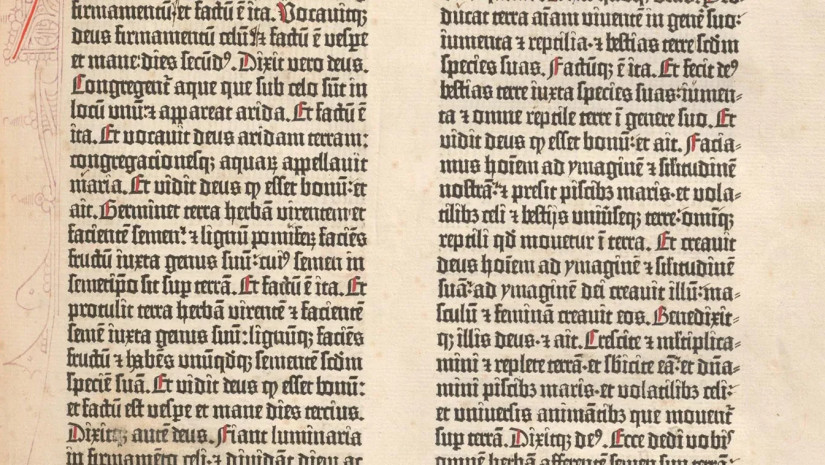 firmamentū: et factū ē ita. Vocavitqꝫ
deus firmamentū celū: ⁊ factū ē vespe
et mane dies secūdꝰ. Dixit vero deus.
Congregent᷑ aque que sub celo sūt in
locū vnū: ⁊ appareat arida. Et factū ē
ita. Et vocavit deus aridam terram:
congregacionesqꝫ aquaꝝ appellavit
maria. Et vidit deus ꝙ esset bonū: et
ait. Germinet terra herbā virentem et
facientē semen: ⁊ lignū pomifeꝝ faciēs
fructū iuxta genus suū: cuiꝰ semen in
semetipo sit sup terrā. Et factū ē ita. Et
protulit terra herbā virentē ⁊ facientē
semē iuxta genus suū: lignūqꝫ faciēs
fructū ⁊ habēs vnūqdqꝫ sementē scdm
speciē suā. Et vidit deus ꝙ esset bonū:
et factū est vespe et mane dies tercius.
Dixitqꝫ autē deus. Fiant luminaria
in firmamēto celi: ⁊ dividāt diem ac
ducat terra aīam viventē in genē suo:
iumenta ⁊ reptilia· ⁊ bestias terre scdm
species suas. Factūqꝫ ē ita. Et fecit deꝰ
bestias terre iuxta species suas: iumen-
ta ⁊ omne reptile terre ī genere suo. Et
vidit deus ꝙ esset bonū: et ait. Facia-
mus hoīem ad ymaginē ⁊ silitudinē
nostrā· ⁊ presit piscibꝫ maris· et vola-
tilibꝫ celi ⁊ bestijs vniūseqꝫ terre: omīqꝫ
reptili qd movetur ī terra. Et creavit
deus hoīem ad ymaginē ⁊ silitudinē
suā: ad ymaginē dei creavit illū: ma-
sculū ⁊ feminā creavit eos. Benedixit-
qꝫ illis deus· ⁊ ait. Crescite ⁊ mltiplica-
mini ⁊ replete terrā· et sbicite eā: et dnā-
mini piscibꝫ maris· et volatilibꝫ celi:
et vniversis animātibꝫ que movent᷑
sup terrā. Dixitqꝫ deꝰ. Ecce dedi vobis
omnē herbā afferentē semen sup terrā: